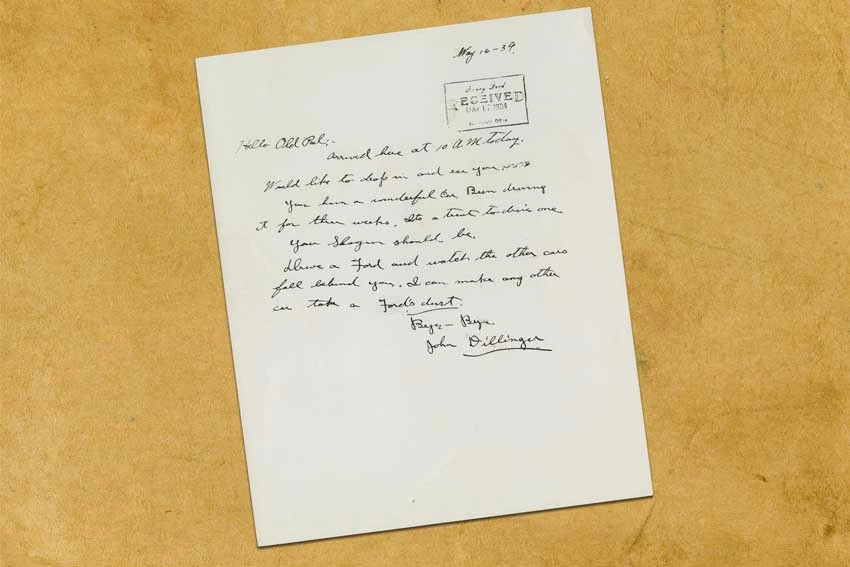 May 16-34.
Henry Ford
RECEIVED
MAY 17 1934
Hello Old Pal;-
Arrived here at 10 A.M today.
Would like to drop in and see you.
You have a wonderful Car. Been driving
it for three weeks. Its a treat to drive one
Your Slogan should be.
Drive a Ford and watch the other cars
fall behind you. I can make any other
car take a Ford's dust.
Bye- Bye.
John Dillinger